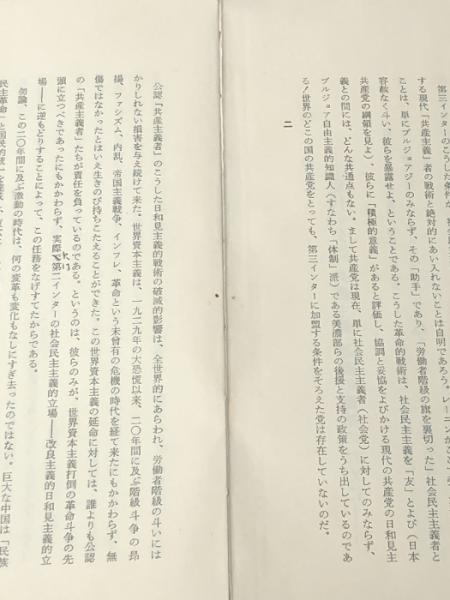 第三インターのこうした条件が、
する現代「共産主義」者の戦術と絶対的にあい入れないことは自明であろう。レーニンが
ことは、単にブルジョアジーのみならず、その「助手」であり、「労働者階級の旗を裏切った」社会民主主義者と
容赦なく斗い、彼らを暴露せよ、ということである。こうした革命的戦術は、社会民主主義を「友」とよび（日本
共産党の綱領を見よ）、彼らに「積極的意義」があると評価し、協調と妥協をよびかける現代の共産党の日和見主
義との間には、どんな共通点もない。まして共産党は現在、単に社会民主主義者（社会党）に対してのみならず、
ブルジョア自由主義的知識人（すなわち「体制」派）である美濃部らの後援と支持の政策をうち出しているのであ
る！世界のどこの国の共産党をとっても、第三インターに加盟する条件をそろえた党は存在していないのだ。
二
公認「共産主義者」のこうした日和見主義的戦術の破滅的影響は、全世界的にあらわれ、労働者階級の斗いには
かりしれない損害を与え続けて来た。世界資本主義は、一九二九年の大恐慌以来、二〇年間に及ぶ階級斗争の昂
揚、ファシズム、内乱、帝国主義戦争、インフレ、革命という未曽有の危機の時代を経て来たにもかかわらず、無
傷ではなかったとはいえ生きのび持ちこたえることができた。この世界資本主義の延命に対しては、誰よりも公認
の「共産主義者」たちが責任を負っているのである。というのは、彼らのみが、世界資本主義打倒の革命斗争の先
頭に立つべきであったにもかかわらず、実際は第二インターの社会民主主義的立場――改良主義的日和見主義的立
場――に逆もどりすることによって、この任務をなげすてたからである。
勿論、この二〇年間に及ぶ激動の時代は、何の変革も変化もなしにすぎ去ったのではない。巨大な中国は「民族
民主革命」と国民的統一を達成し